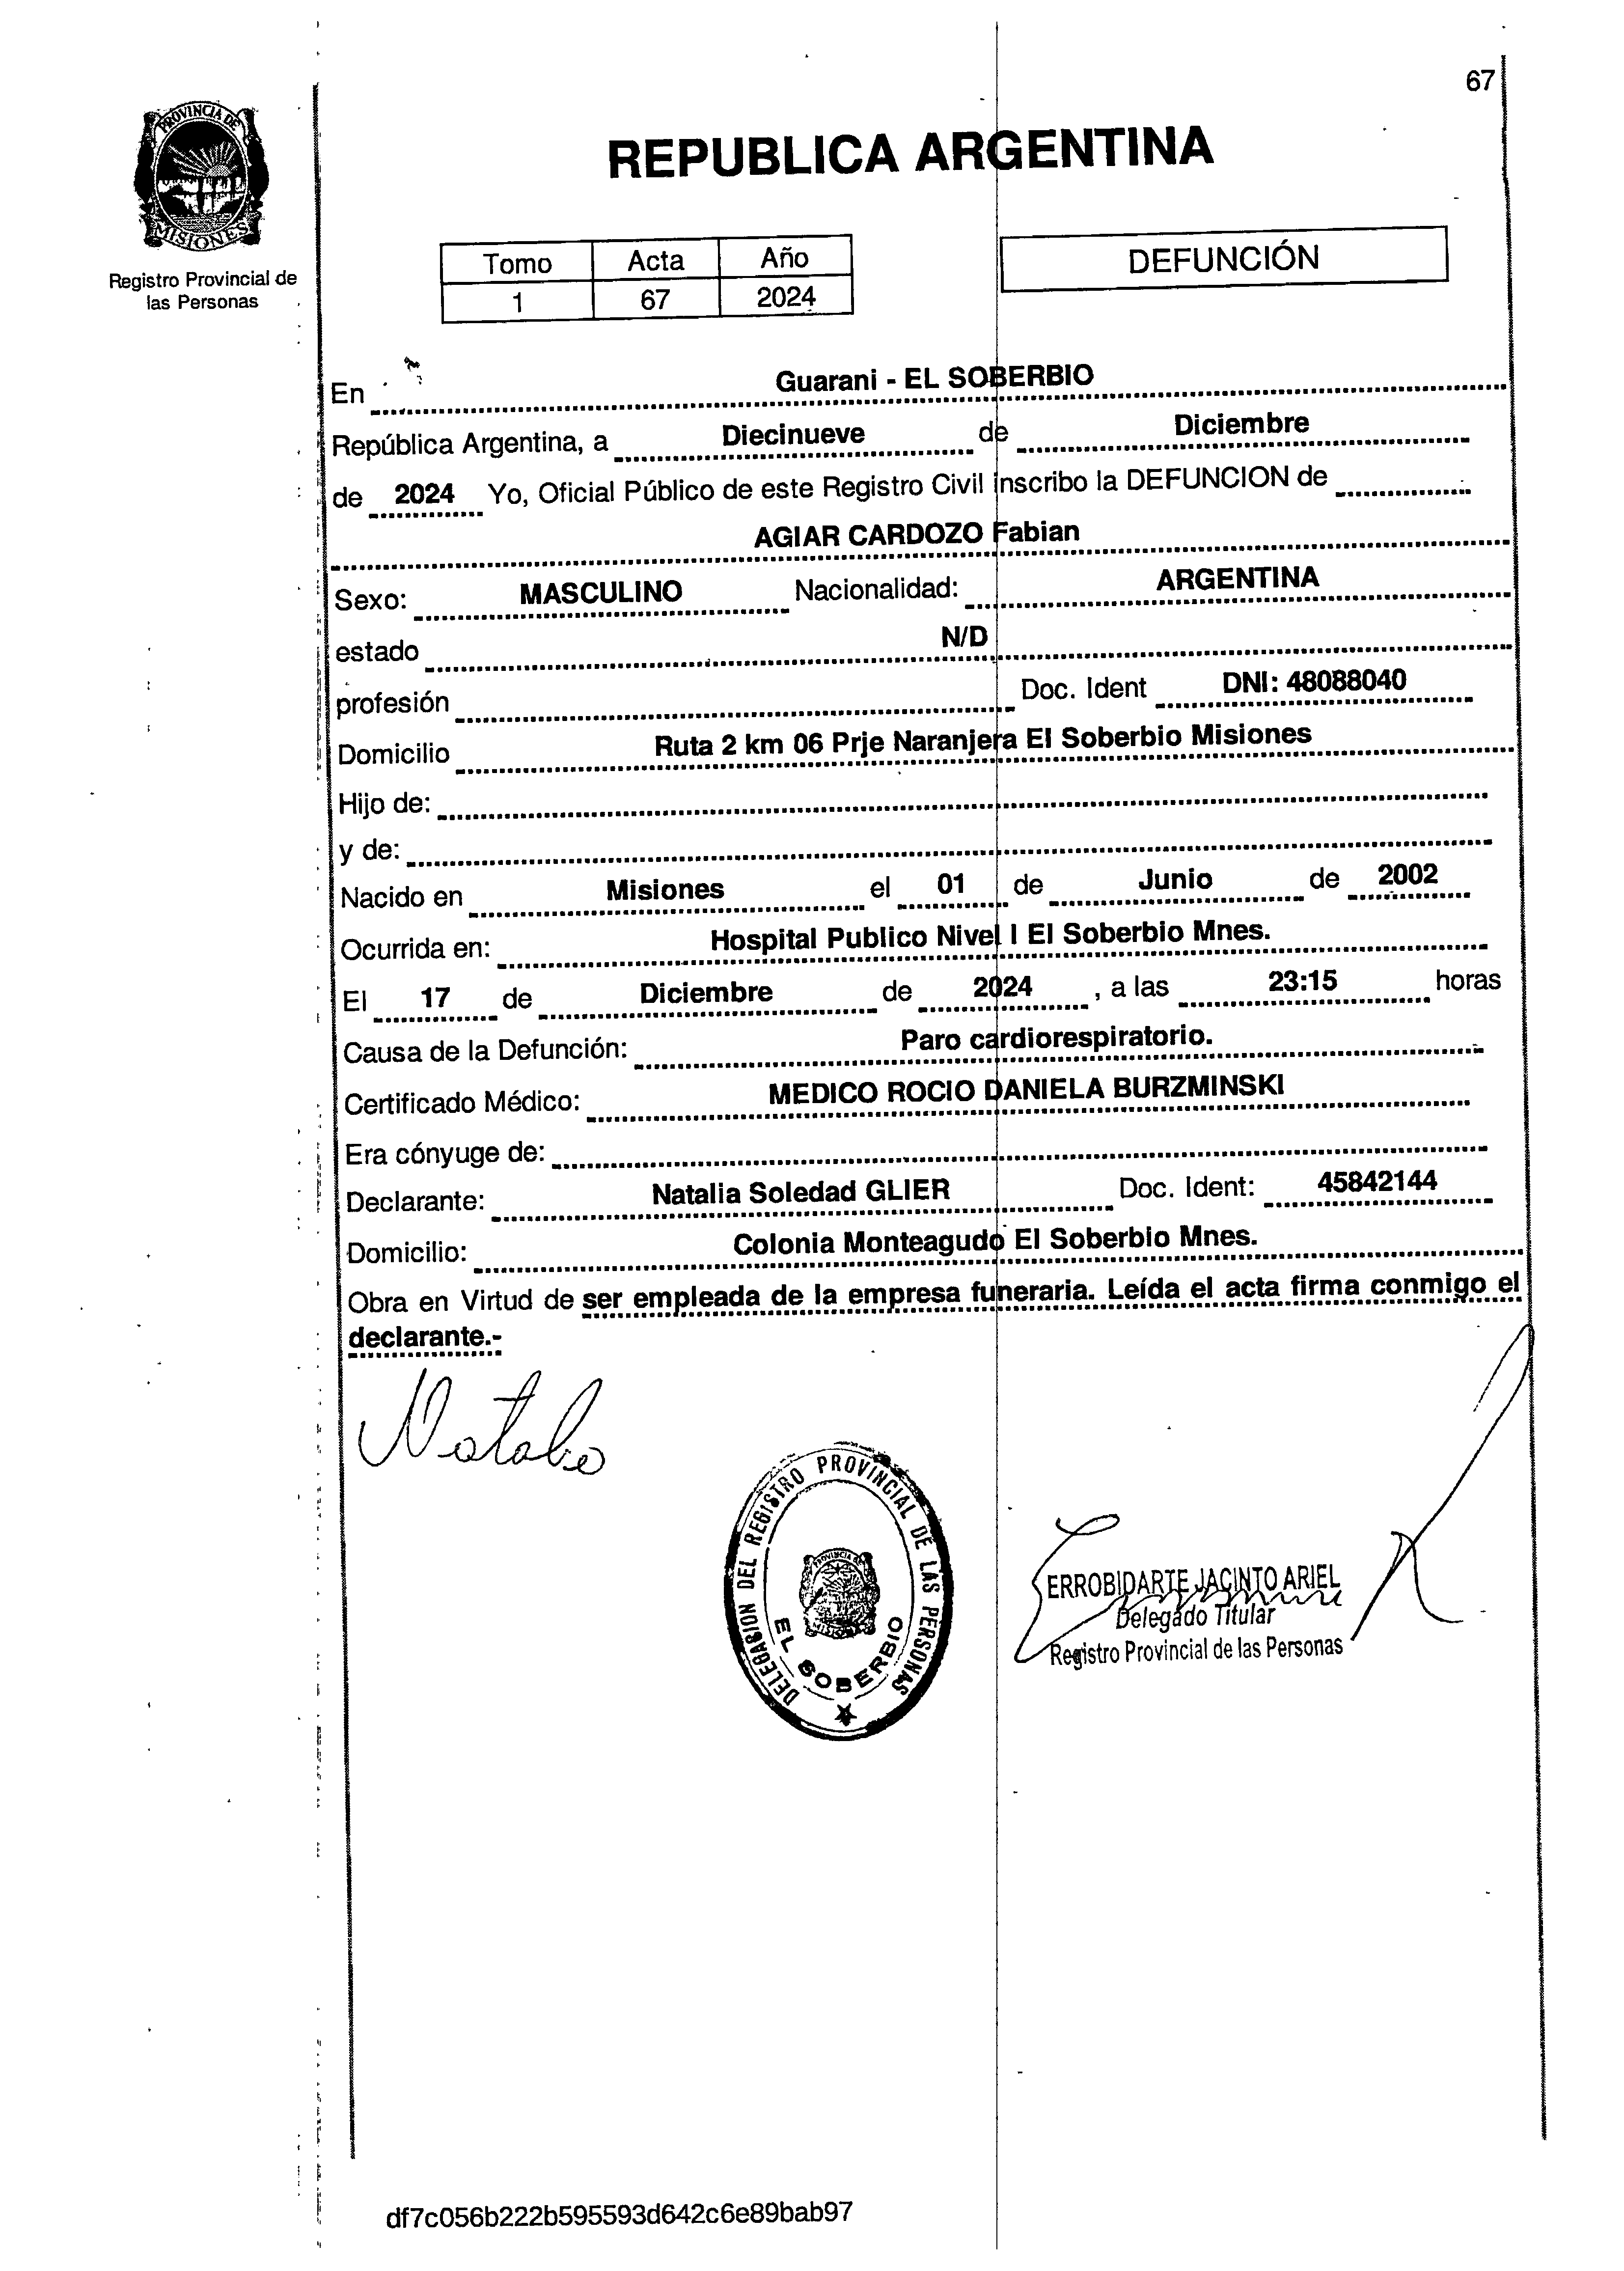 67
PROVINCIA DE
MISIONES
Registro Provincial de
las Personas
REPUBLICA ARGENTINA
Tomo Acta Año
1 67 2024
DEFUNCIÓN
En Guarani - EL SOBERBIO
República Argentina, a Diecinueve de Diciembre
de 2024 Yo, Oficial Público de este Registro Civil inscribo la DEFUNCION de
AGIAR CARDOZO Fabian
Sexo: MASCULINO Nacionalidad: ARGENTINA
estado N/D
profesión Doc. Ident DNI: 48088040
Domicilio Ruta 2 km 06 Prje Naranjera El Soberbio Misiones
Hijo de:
y de:
Nacido en Misiones el 01 de Junio de 2002
Ocurrida en: Hospital Publico Nivel I El Soberbio Mnes.
El 17 de Diciembre de 2024 , a las 23:15 horas
Causa de la Defunción: Paro cardiorespiratorio.
Certificado Médico: MEDICO ROCIO DANIELA BURZMINSKI
Era cónyuge de:
Declarante: Natalia Soledad GLIER Doc. Ident: 45842144
Domicilio: Colonia Monteagudo El Soberbio Mnes.
Obra en Virtud de ser empleada de la empresa funeraria. Leída el acta firma conmigo el
declarante.-
DELEGASION DEL REGISTRO PROVINCIAL DE LAS PERSONAS
PROVINCIA DE
MISIONES
EL SOBERBIO
ERROBIDARTE JACINTO ARIEL
Delegado Titular
Registro Provincial de las Personas
df7c056b222b595593d642c6e89bab97